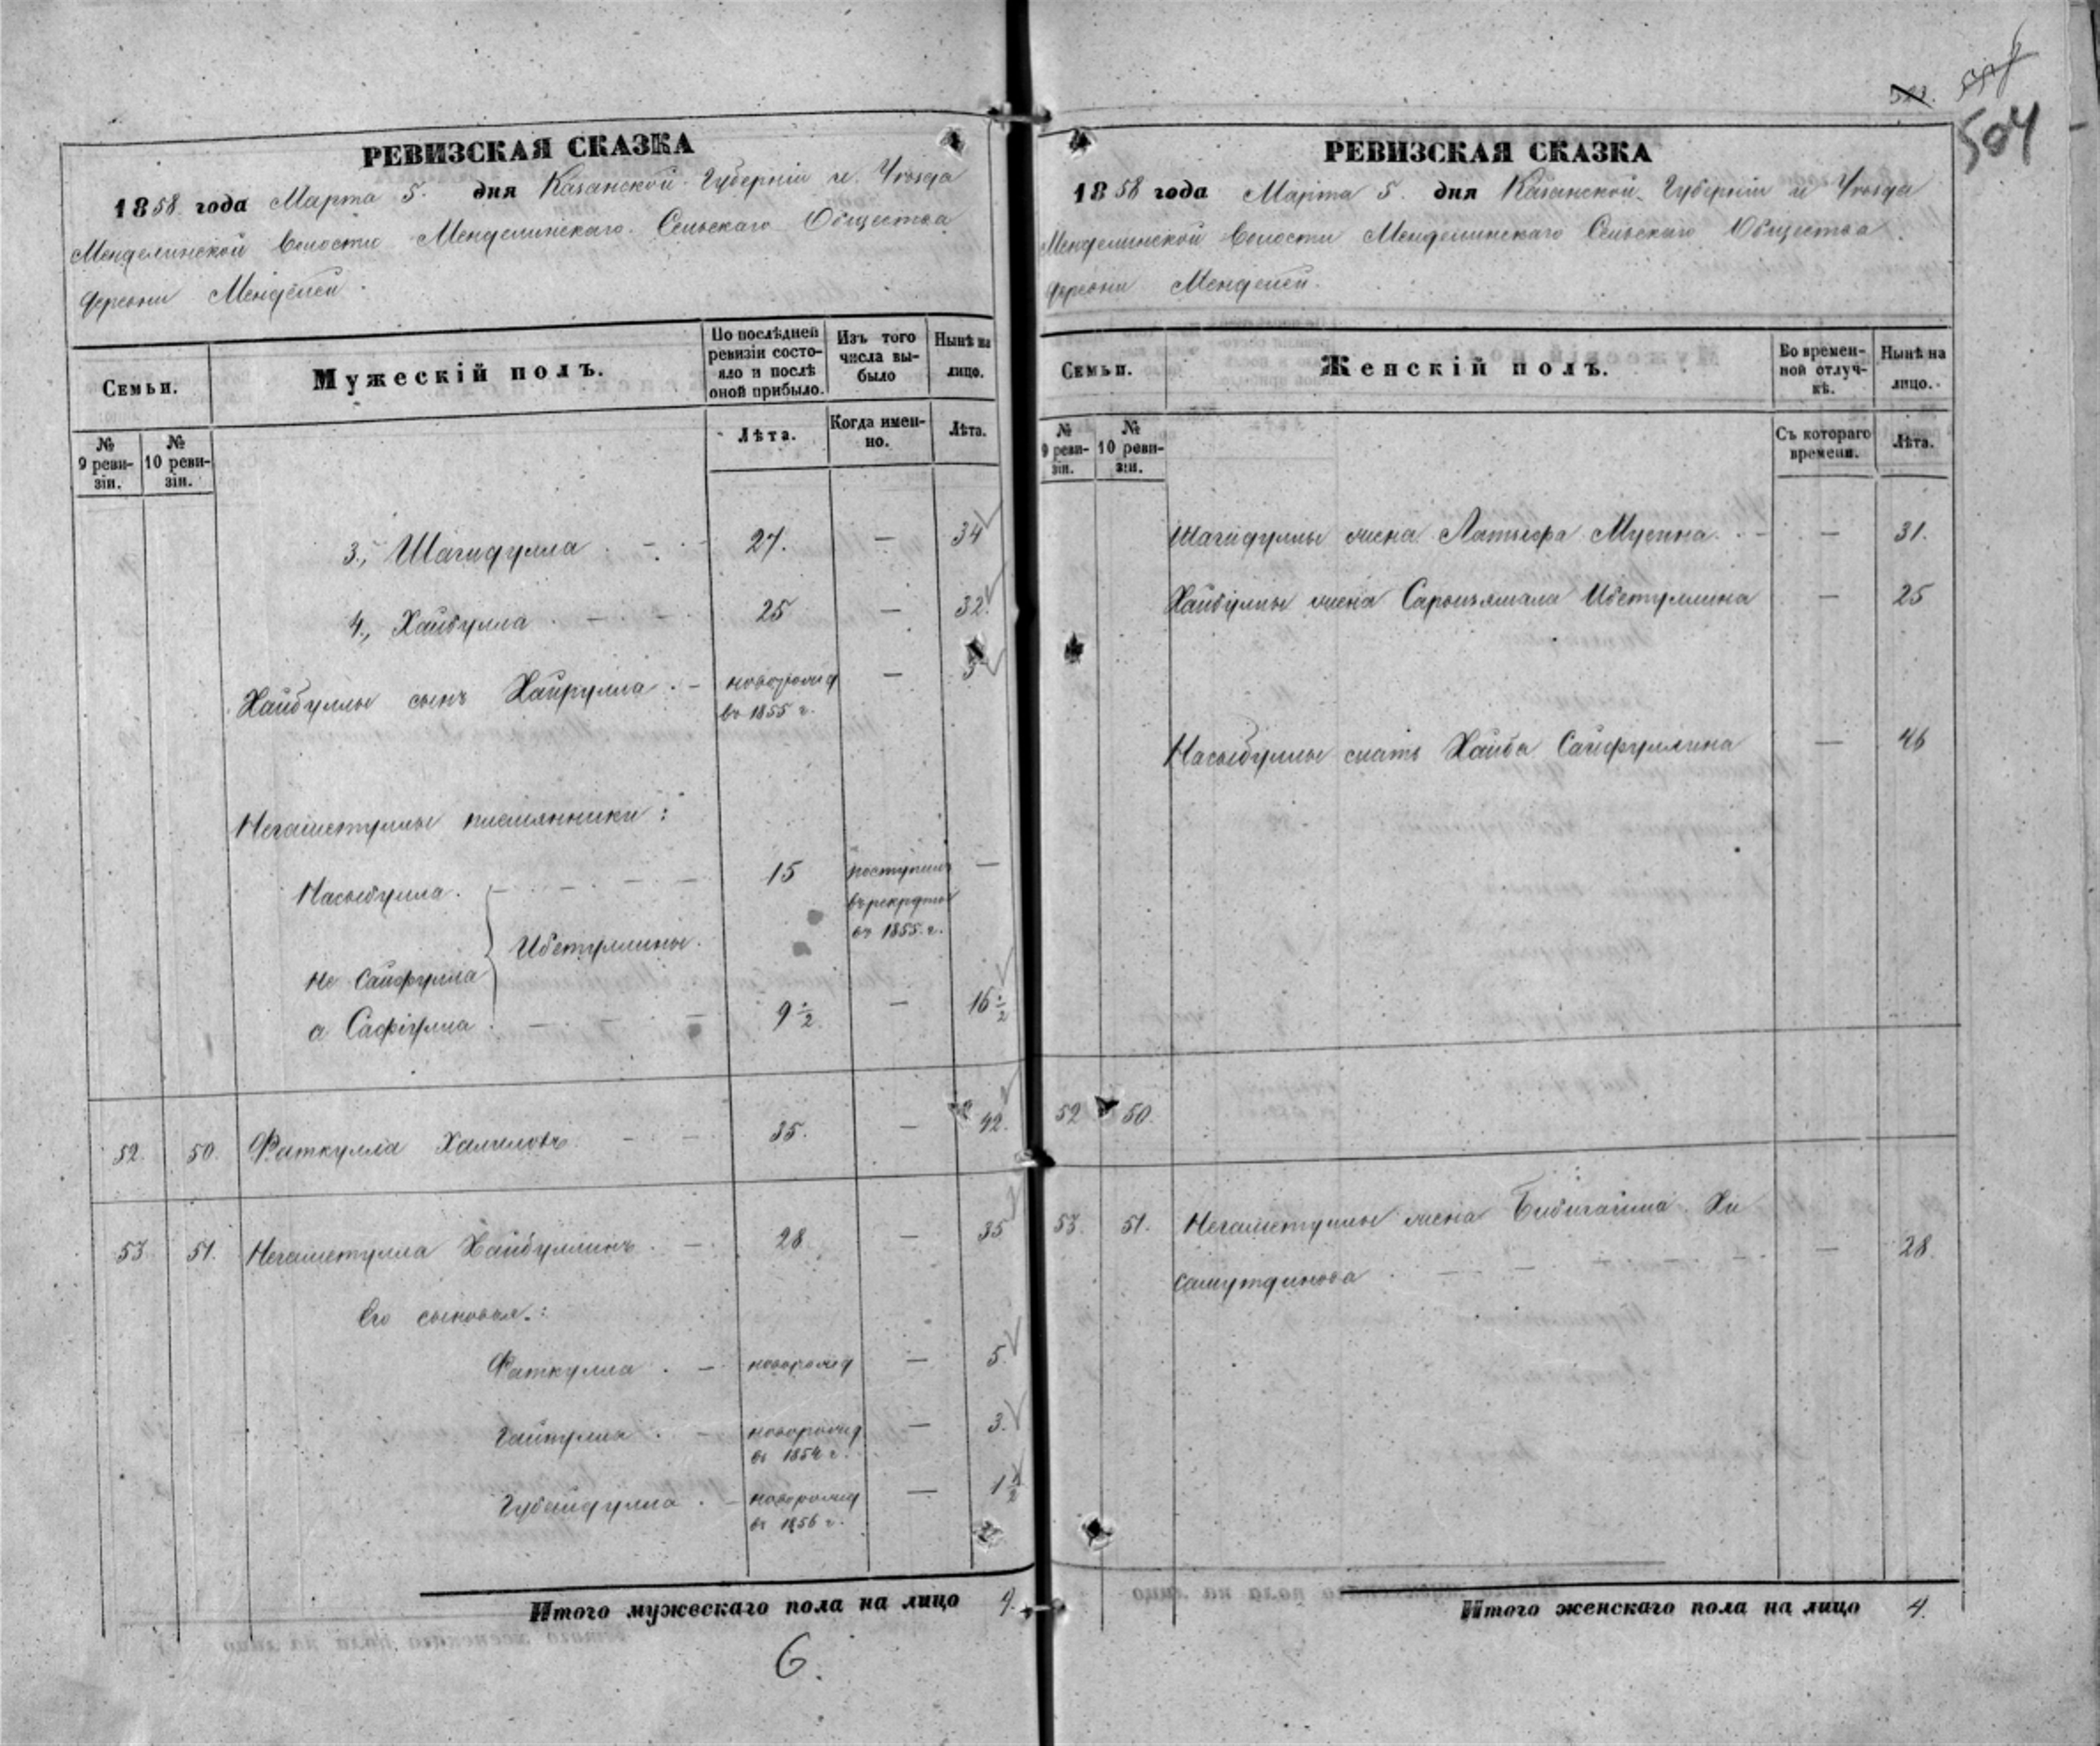 РЕВИЗСКАЯ СКАЗКА
1858 года Марта 5. дня Казанской Губерніи и Уѣзда
Менделинской Волости Менделинскаго Сельскаго Общества
деревни Менделей.
Семьи.
Мужескій полъ.
По послѣдней ревизіи состояло и послѣ оной прибыло.
Изъ того числа выбыло
Нынѣ на лицо.
№ 9 ревизіи.
№ 10 ревизіи.
Лѣта.
Когда именно.
Лѣта.
3., Шагидулла 27. — 34
4., Хайбулла 25 — 32.
Хайбуллы сынъ Хайрулла новорожд въ 1855 г. — 3
Негаметуллы племянники:
Насыбулла. 15 поступилъ въ рекруты въ 1855. г. —
Ибетуллины.
не Сайфулла
а Сафіулла 9 ½ — 16 ½
52. 50. Фаткулла Халиловъ. 35. — 42.
53 51. Негаметулла Хайбуллинъ 28 — 35
Его сыновья:
Фаткулла новорожд — 5.
новорожд въ 1854 г. — 3.
Губайдулла новорожд въ 1856 г. — 1 ½
Итого мужескаго пола на лицо 9.
6.
523.
504
РЕВИЗСКАЯ СКАЗКА
1858 года Марта 5. дня Казанской Губерніи и Уѣзда
Менделинской Волости Менделинскаго Сельскаго Общества
деревни Менделей.
Семьи.
Женскій полъ.
Во временной отлучкѣ.
Нынѣ на лицо.
№ 9 ревизіи.
№ 10 ревизіи.
Съ котораго времени.
Лѣта.
Шагидуллы жена Мусина. — 31.
Хайбуллы жена Ибетуллина — 25
Насыбуллы мать Хайба Сайфуллина — 46
52 50.
53. 51. Негаметуллы жена Бибигайша Хи
самутдинова — 28.
Итого женскаго пола на лицо 4.